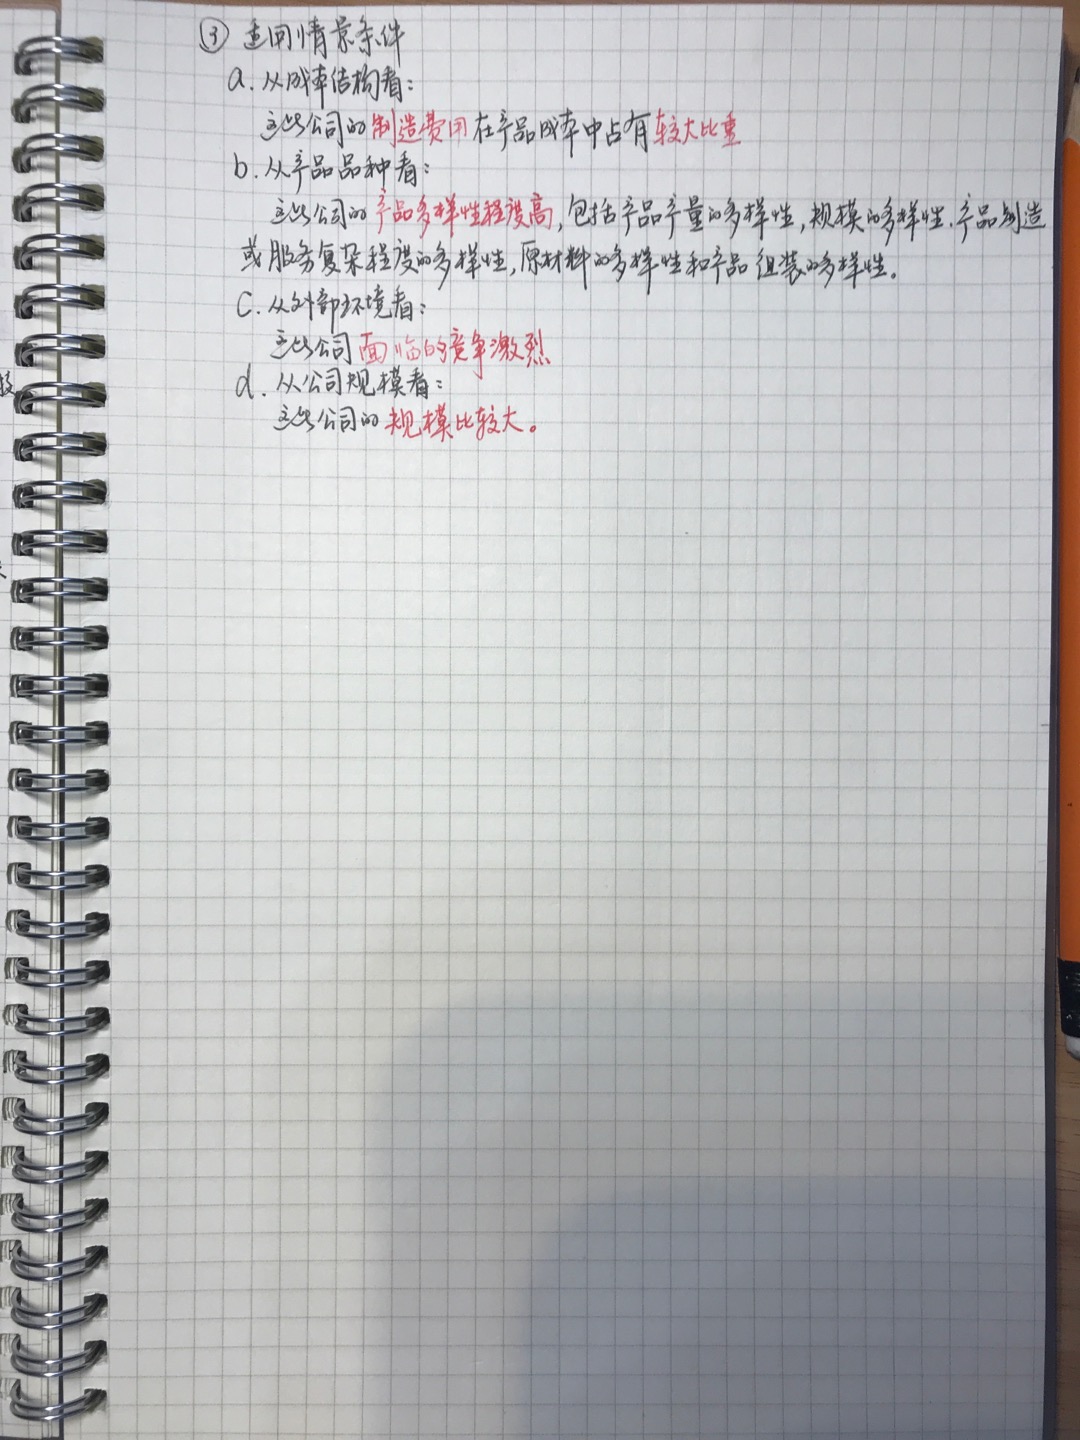 ③ 适用情景条件
a. 从成本结构看：
这些公司的制造费用在产品成本中占有较大比重
b. 从产品品种看：
这些公司的产品多样性程度高，包括产品产量的多样性，规模的多样性，产品制造
或服务复杂程度的多样性，原材料的多样性和产品组装的多样性。
C. 从外部环境看：
这些公司面临的竞争激烈
d. 从公司规模看：
这些公司的规模比较大。